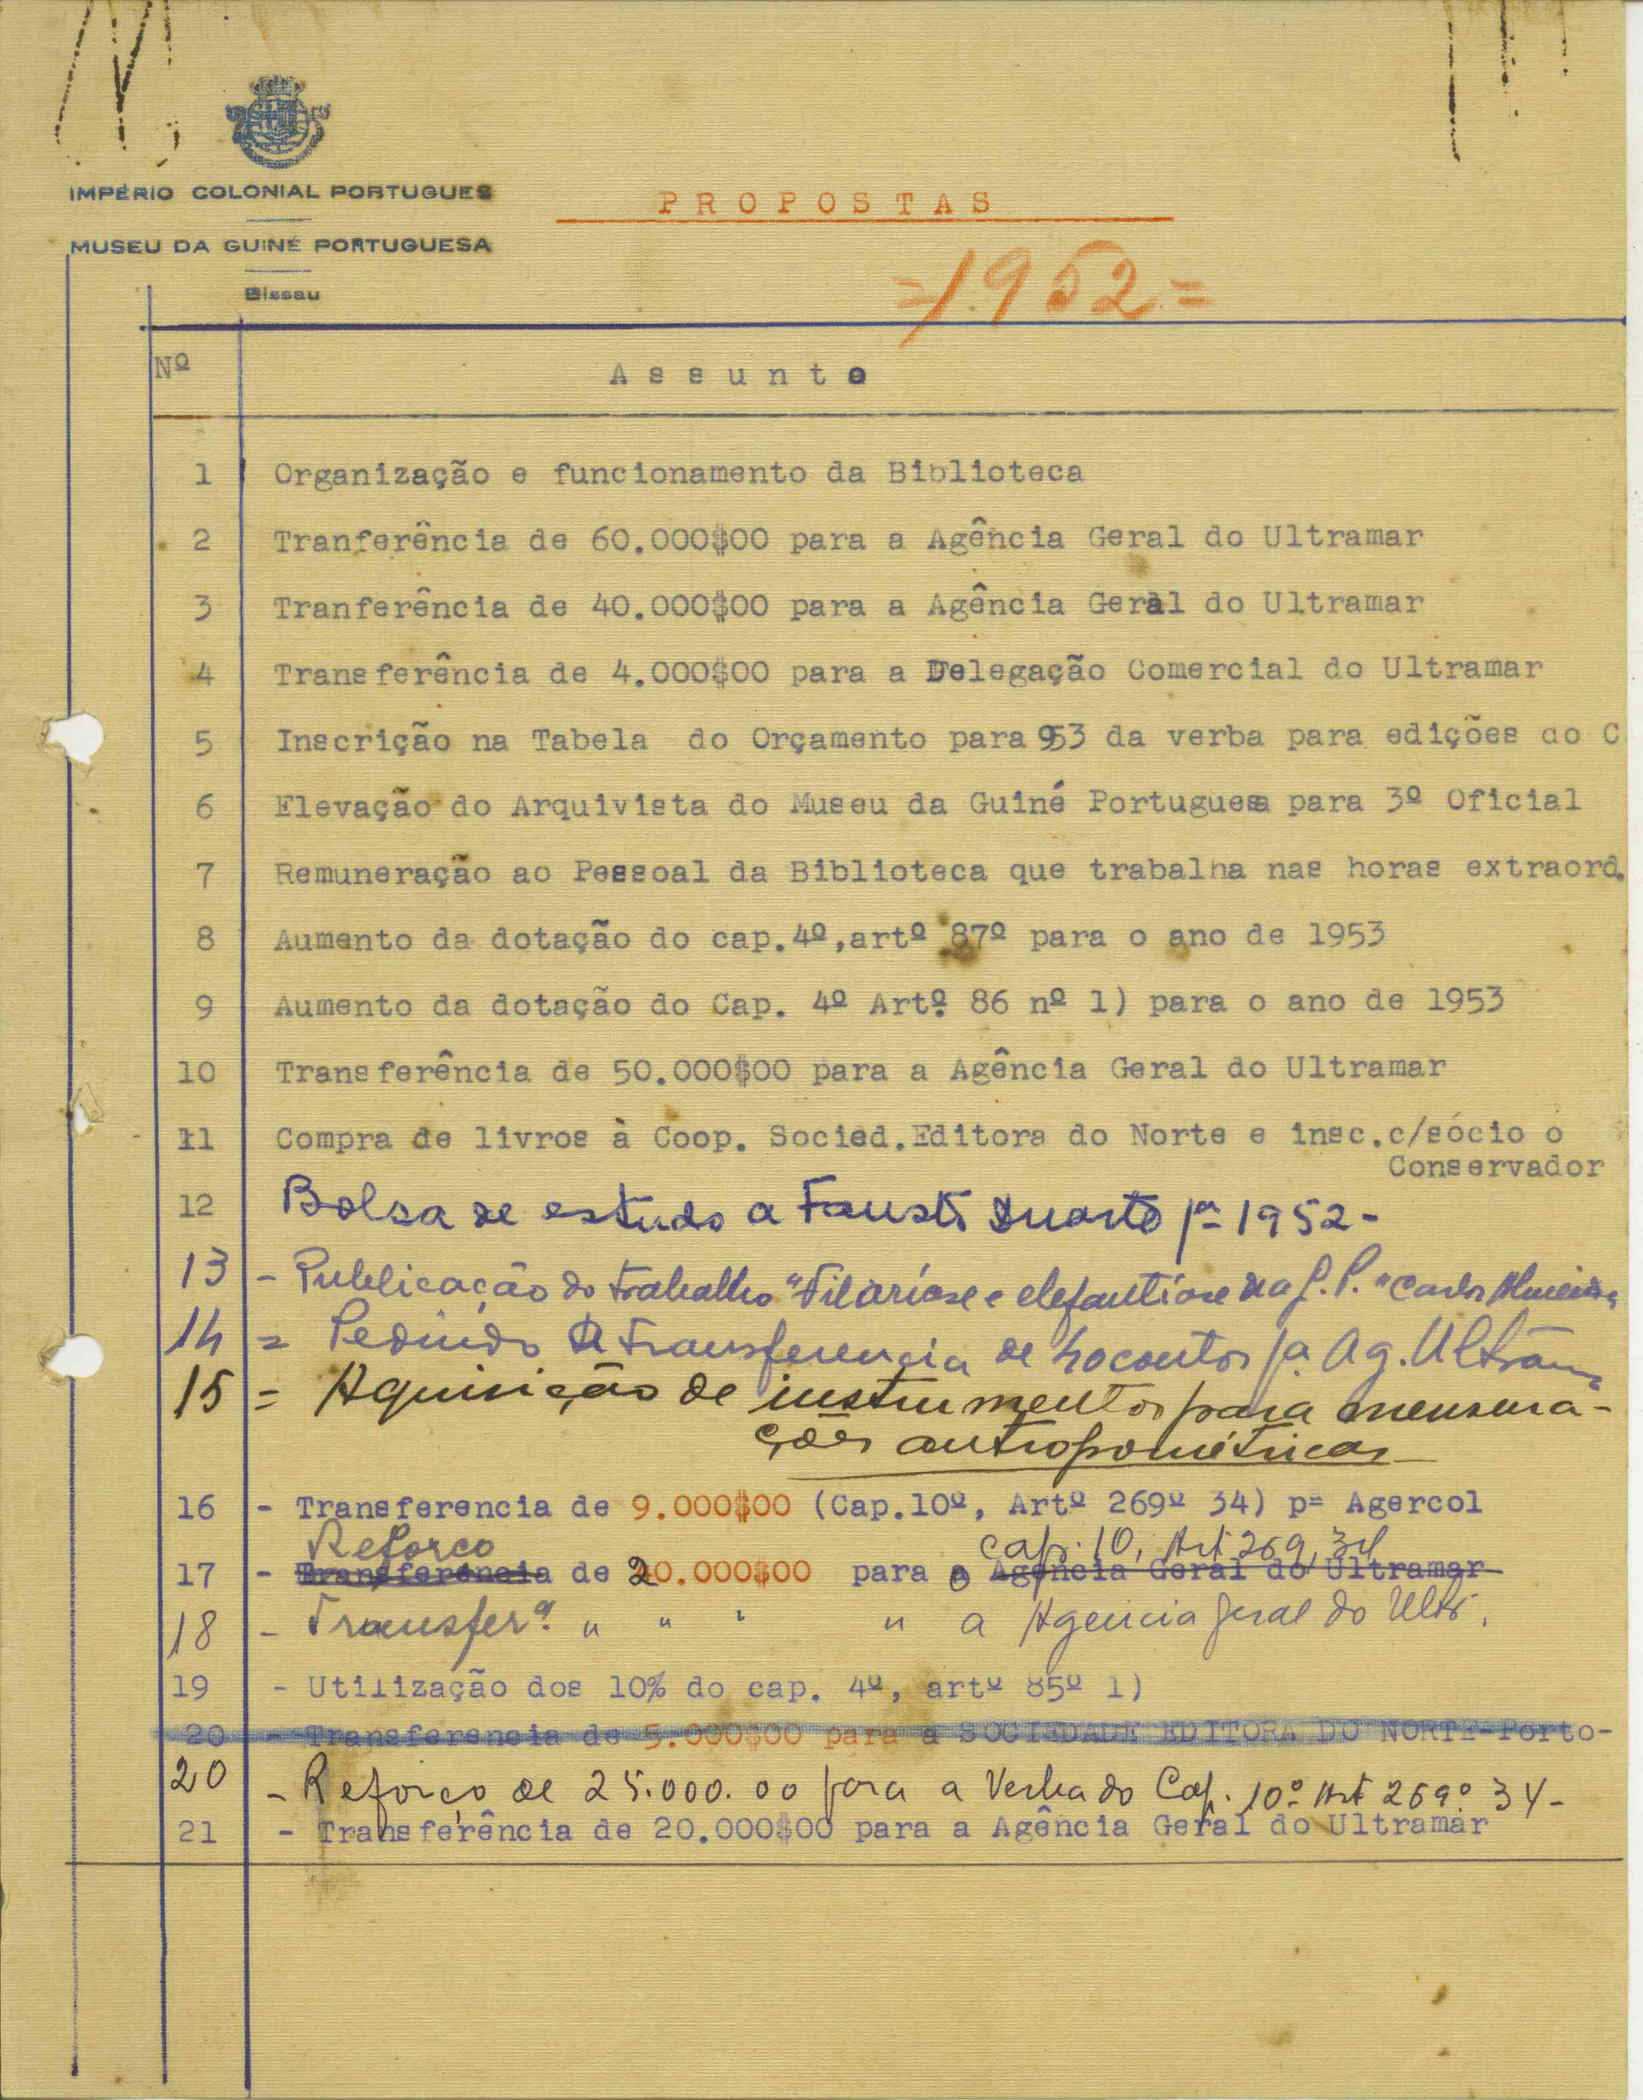 IMPÉRIO COLONIAL PORTUGUES
MUSEU DA GUINÉ PORTUGUESA
Bissau
PROPOSTAS
=1952=
Nº Assunto
1 Organização e funcionamento da Biblioteca
2 Tranferência de 60.000$00 para a Agência Geral do Ultramar
3 Tranferência de 40.000$00 para a Agência Geral do Ultramar
4 Transferência de 4.000$00 para a Delegação Comercial do Ultramar
5 Inscrição na Tabela do Orçamento para 953 da verba para edições do C
6 Elevação do Arquivista do Museu da Guiné Portuguesa para 3º Oficial
7 Remuneração ao Pessoal da Biblioteca que trabalha nas horas extraord.
8 Aumento da dotação do cap.4º,artº 87º para o ano de 1953
9 Aumento da dotação do Cap. 4º Artº. 86 nº 1) para o ano de 1953
10 Transferência de 50.000$00 para a Agência Geral do Ultramar
11 Compra de livros à Coop. Socied.Editora do Norte e insc.c/sócio o
Conservador
12 Bolsa de estudo a Fausto Duarte pª 1952-
13 - Publicação do trabalho "Filaríose e elefantíase na G.P." Carlos
14 = Pedindo a transferencia de contos pª Ag. Ultram
15 = Aquisição de instrumentos para mensura-
ções antropométricas
16 - Transferencia de 9.000$00 (Cap.10º, Artº 269º 34) p= Agercol
Reforço cap. 10, Art 269, 34
17 - Transferencia de 20.000$00 para o Agencia Geral do Ultramar
18 - Transferª. " " " " a Agencia Geral do Ultr.
19 - Utilização dos 10% do cap. 4º, artº 85º 1)
20 - Transferencia de 5.000$00 para a SOCIEDADE EDITORA DO NORTE-Porto-
20 - Reforço de 25.000.00 para a Verba do Cap. 10º Art 269º 34-
21 - Transferência de 20.000$00 para a Agência Geral do Ultramar